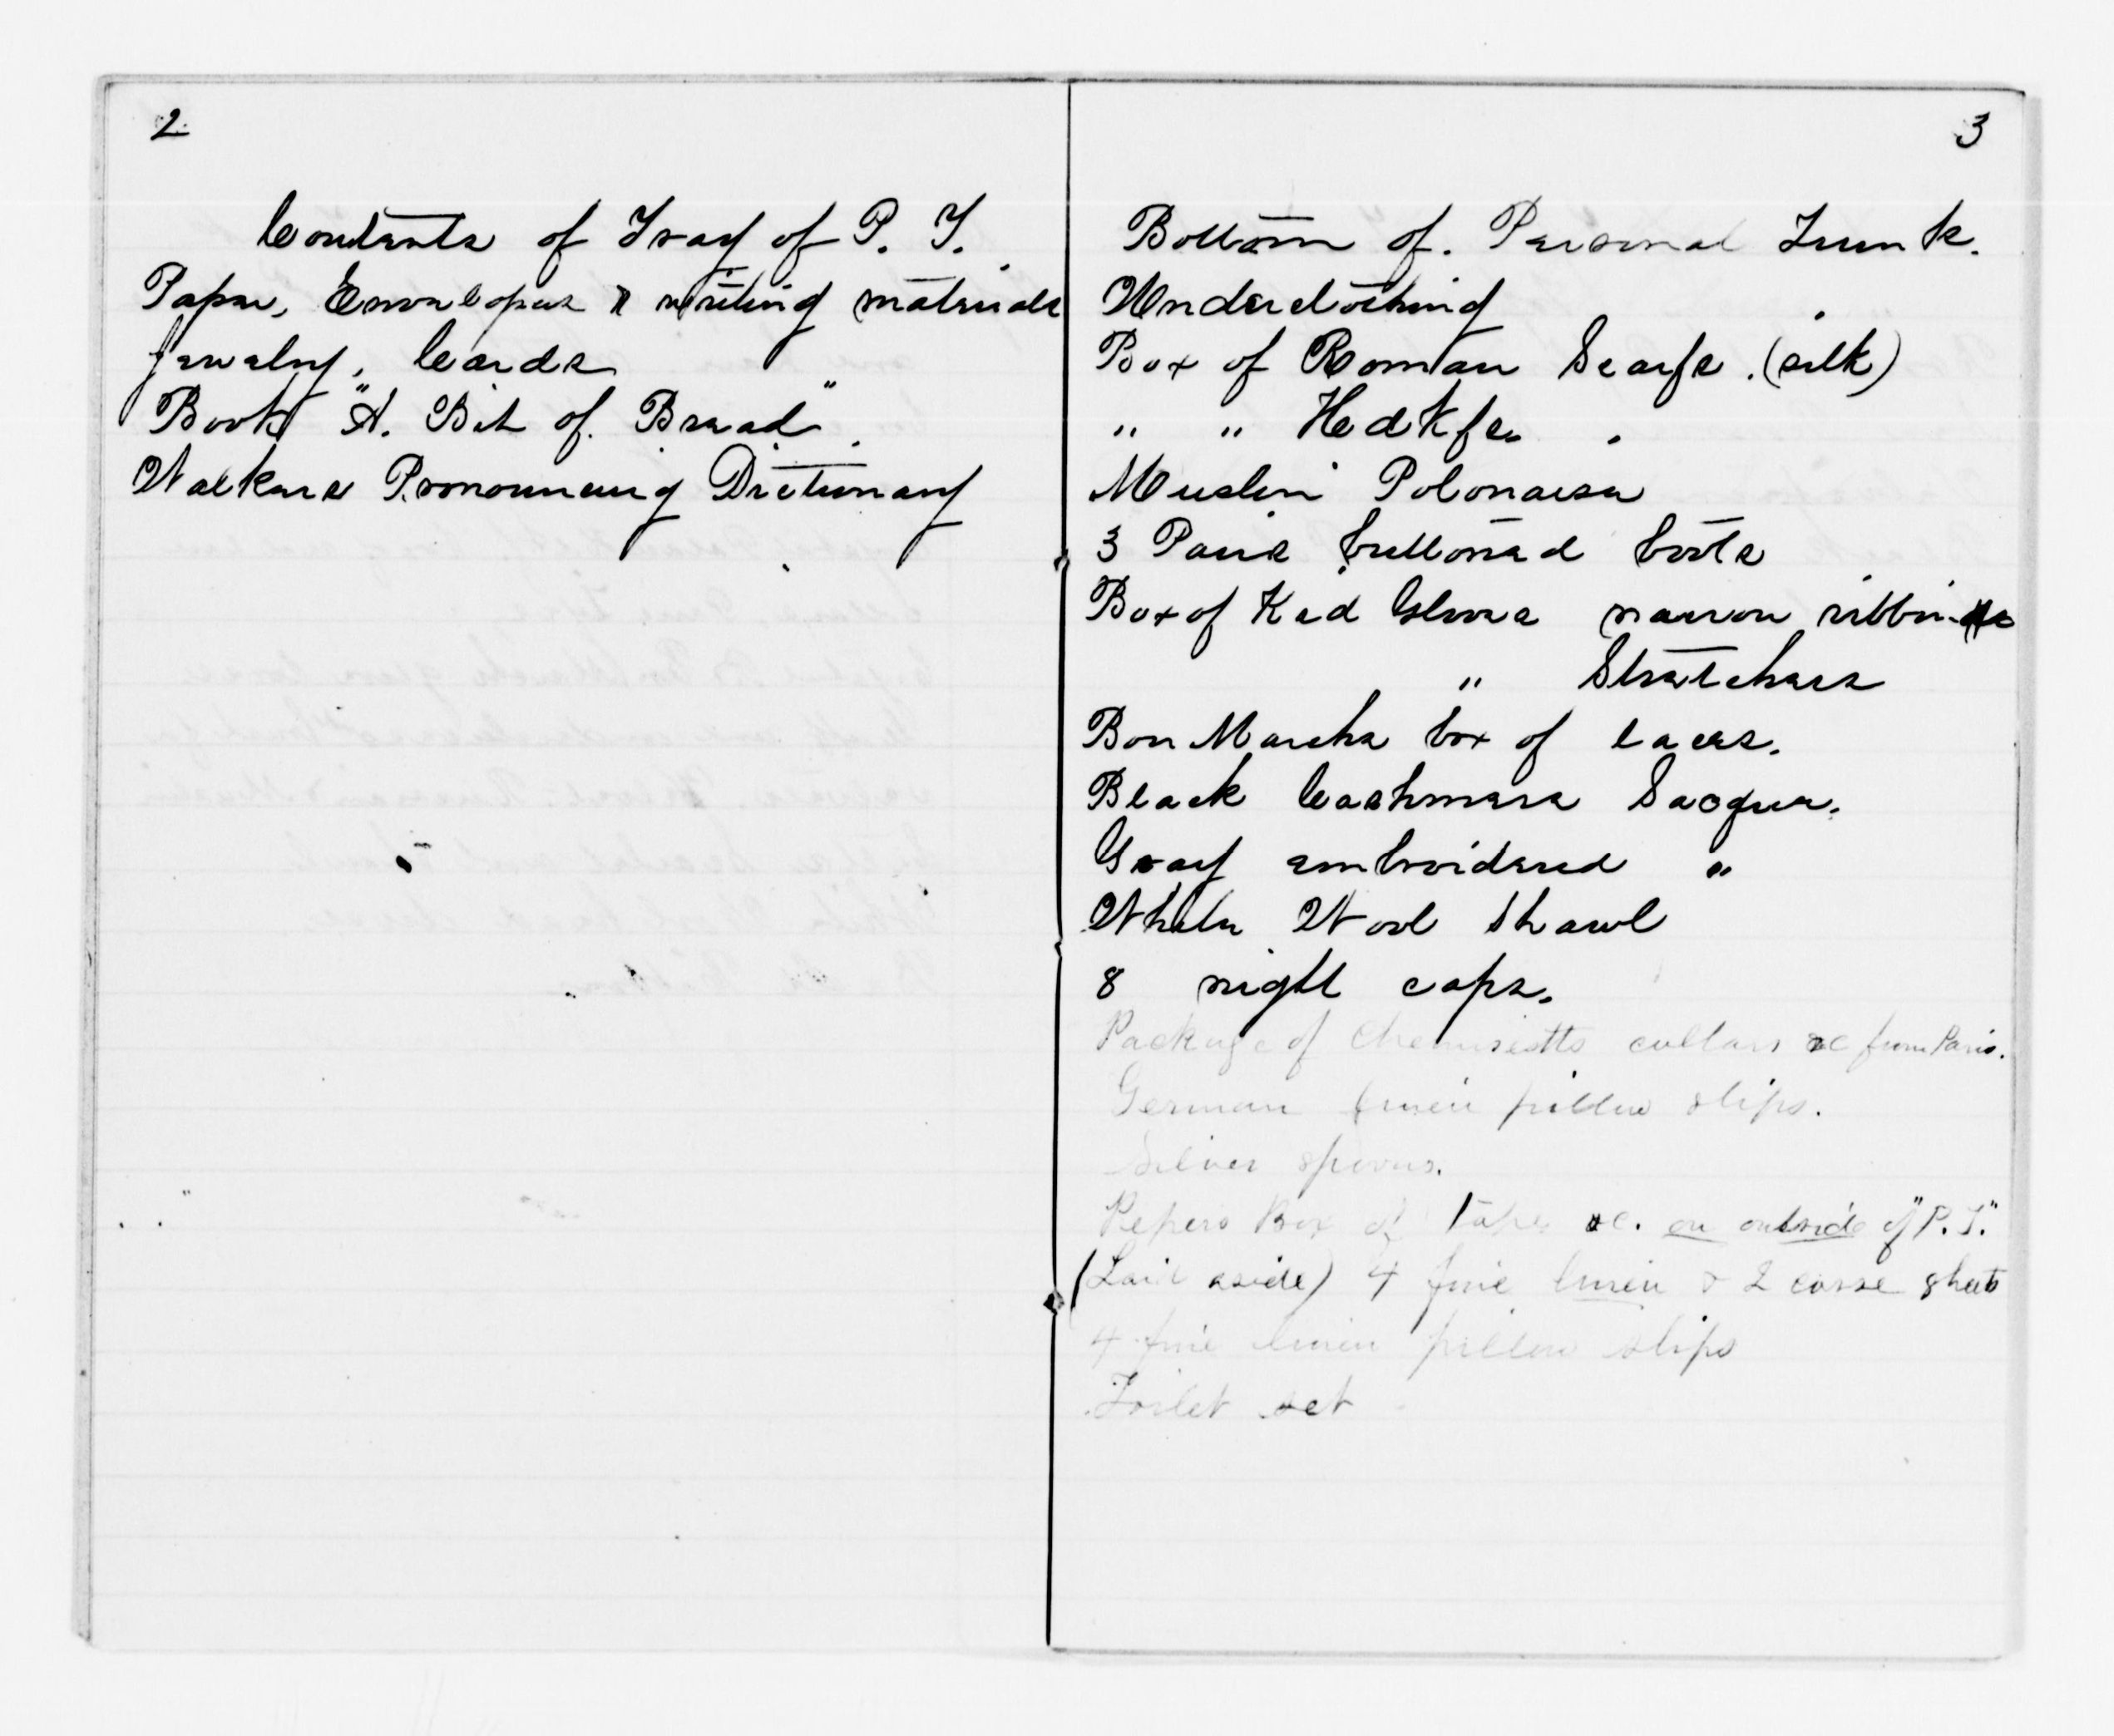 2
Contents of Tray of P. T.
Paper, Envelopes & writing materials
Jewelry, Cards
Book "A. Bit of Bread".
Walkers Pronouncing Dictionary
3
Bottom of. Personal Trunk.
Underclothing
Box of Roman Scarfs. (silk)
" " Hedkfs.
Muslin Polonaise
3 Pairs buttoned boots
Box of Kid Gloves narrow ribbin
" Stretchers
Bon Marche box of laces.
Black Cashmere Sacque.
Gray embroidered "
White Wool Shawl
8 night caps.
Package of Chemisetts collars &c from Paris.
German linen pillow slips.
Silver spoons.
Box of tape &c. on outside of "P. T."
(Laid aside) 4 fine linen & 2 corse sheets
4 fine linen pillow slips
Toilet set